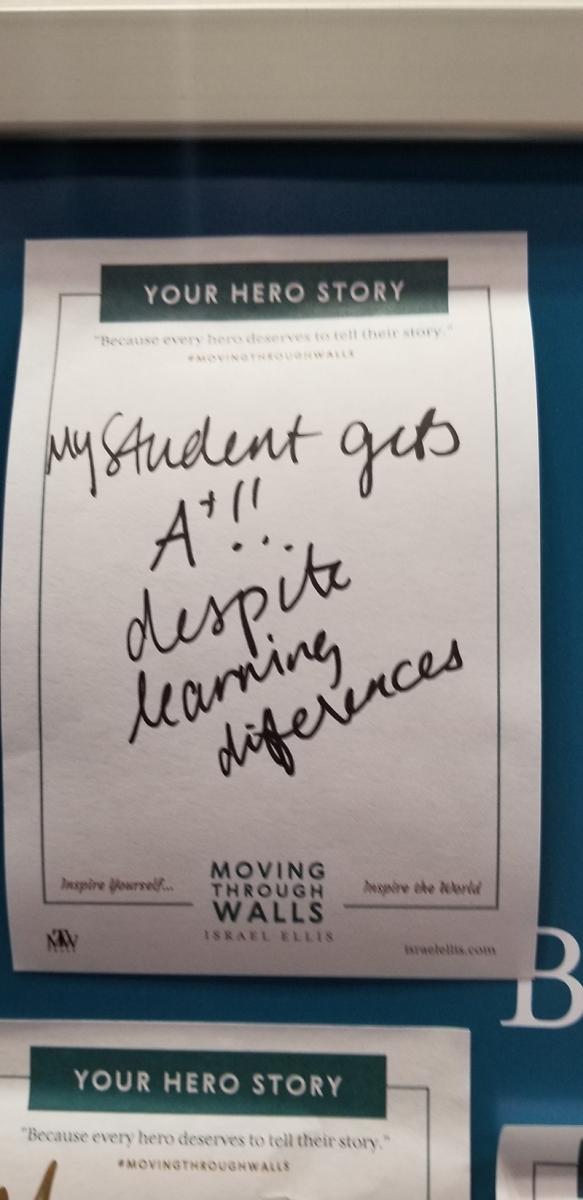 YOUR HERO STORY
"Because every hero deserves to tell their story."
#MOVINGTHROUGHWALLS
My Student gets
A+!!...
despite
learning
differences
Inspire Yourself...
MOVING
THROUGH
WALLS
ISRAEL ELLIS
Inspire the World
MTW
israelellis.com
B
YOUR HERO STORY
"Because every hero deserves to tell their story."
#MOVINGTHROUGHWALLS